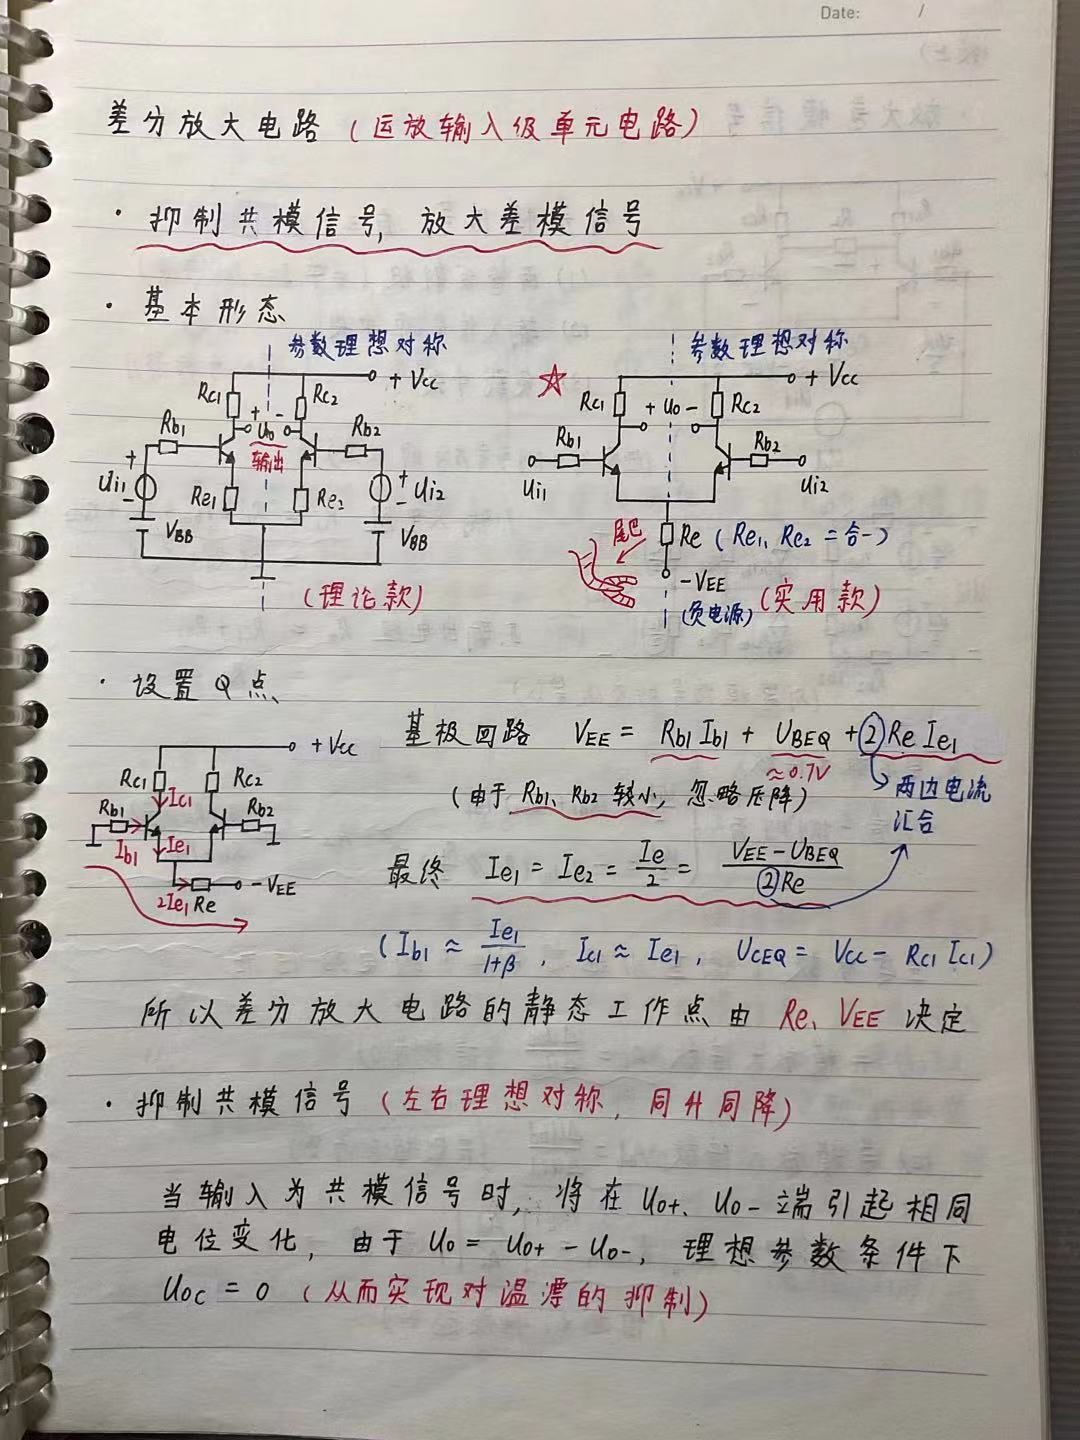 Date: /
差分放大电路(运放输入级单元电路)
· 抑制共模信号, 放大差模信号
· 基本形态
参数理想对称
参数理想对称
Rc1 Rc2 +Vcc
Rb1 + uo - Rb2
输出
+ ui1 - Re1 Re2 + ui2 -
VBB VBB
(理论款)
☆ Rc1 + uo - Rc2 +Vcc
Rb1 Rb2
ui1 ui2
尾巴 Re (Re1、Re2 二合一)
-VEE (实用款)
(负电源)
· 设置Q点
+Vcc
Rc1 Rc2
Ic1
Rb1 Rb2
Ib1 Ie1
2Ie1 Re -VEE
基极回路 VEE = Rb1 Ib1 + UBEQ + 2 Re Ie1
≈0.7V
(由于 Rb1、Rb2 较小, 忽略压降)
两边电流
汇合
最终 Ie1 = Ie2 = Ie/2 = (VEE-UBEQ)/2Re
(Ib1 ≈ Ie1/1+β, Ic1 ≈ Ie1, UCEQ = Vcc - Rc1 Ic1)
所以差分放大电路的静态工作点由 Re、VEE 决定
· 抑制共模信号 (左右理想对称, 同升同降)
当输入为共模信号时, 将在 uo+、uo- 端引起相同
电位变化, 由于 uo = uo+ - uo-, 理想参数条件下
uoc = 0 (从而实现对温漂的抑制)